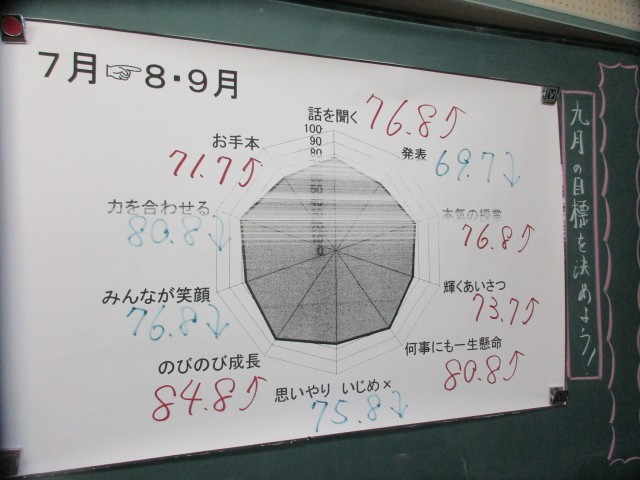 7月☞8・9月
話を聞く
76.8↑
発表
69.7↓
本気の授業
76.8↑
輝くあいさつ
73.7↑
何事にも一生懸命
80.8↑
思いやり いじめ×
75.8↓
のびのび成長
84.8↑
みんなが笑顔
76.8↓
力を合わせる
80.8↓
お手本
71.7↑
100
90
80
0
九月の目標を決めよう!